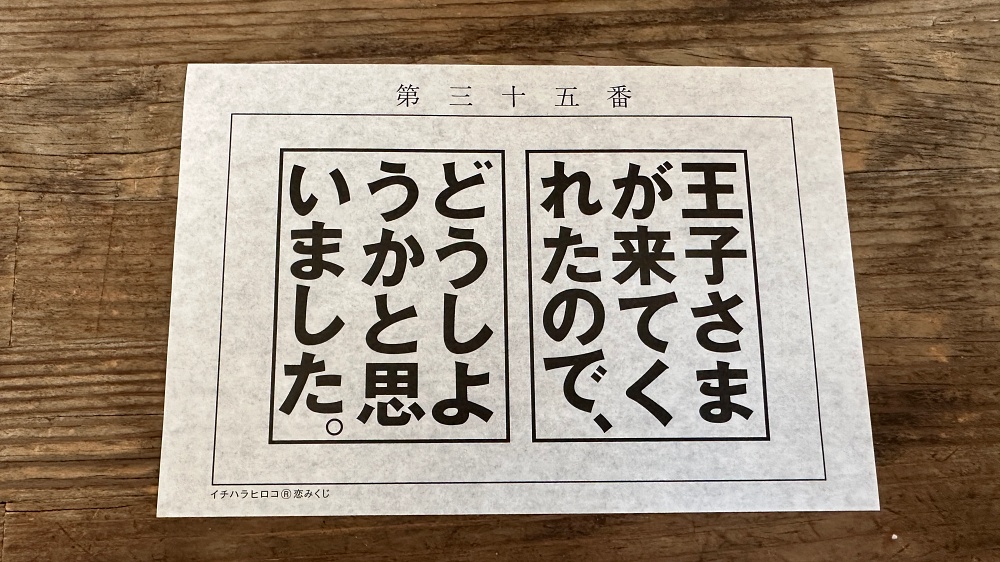 第三十五番
王子さま
が来てく
れたので、
どうしよ
うかと思
いました。
イチハラヒロコ®恋みくじ